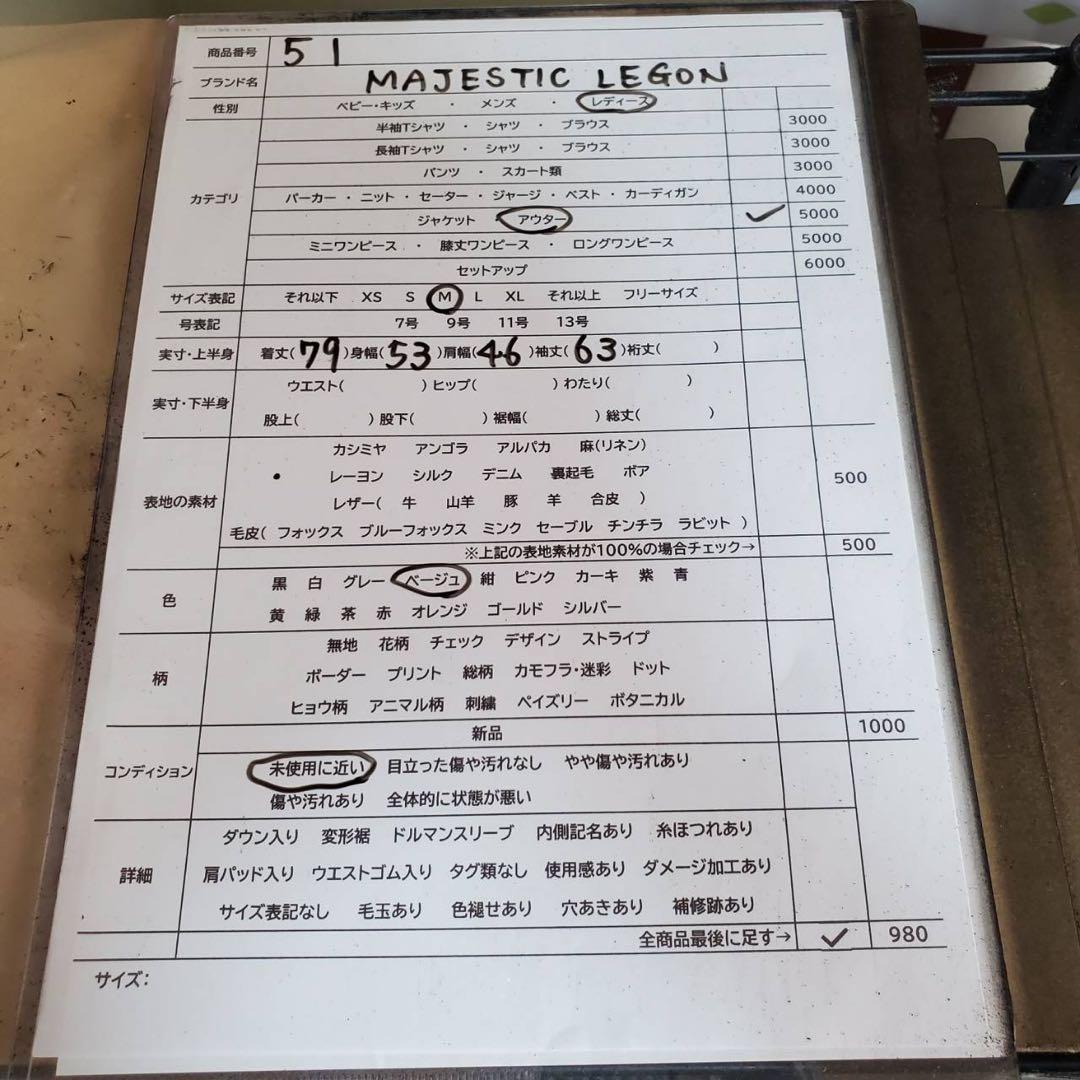 商品番号 51
ブランド名 MAJESTIC LEGON
性別 ベビー・キッズ ・ メンズ ・ レディース
半袖Tシャツ ・ シャツ ・ ブラウス 3000
長袖Tシャツ ・ シャツ ・ ブラウス 3000
パンツ ・ スカート類 3000
カテゴリ パーカー ・ ニット ・ セーター ・ ジャージ ・ ベスト ・ カーディガン 4000
ジャケット ・ アウター ✓ 5000
ミニワンピース ・ 膝丈ワンピース ・ ロングワンピース 5000
セットアップ 6000
サイズ表記 それ以下 XS S M L XL それ以上 フリーサイズ
号表記 7号 9号 11号 13号
実寸・上半身 着丈(79)身幅(53)肩幅(46)袖丈(63)裄丈( )
実寸・下半身 ウエスト( )ヒップ( )わたり( )
股上( )股下( )裾幅( )総丈( )
カシミヤ アンゴラ アルパカ 麻(リネン)
・ レーヨン シルク デニム 裏起毛 ボア 500
表地の素材 レザー( 牛 山羊 豚 羊 合皮 )
毛皮( フォックス ブルーフォックス ミンク セーブル チンチラ ラビット )
※上記の表地素材が100%の場合チェック→ 500
色 黒 白 グレー ベージュ 紺 ピンク カーキ 紫 青
黄 緑 茶 赤 オレンジ ゴールド シルバー
無地 花柄 チェック デザイン ストライプ
柄 ボーダー プリント 総柄 カモフラ・迷彩 ドット
ヒョウ柄 アニマル柄 刺繍 ペイズリー ボタニカル
新品 1000
コンディション 未使用に近い 目立った傷や汚れなし やや傷や汚れあり
傷や汚れあり 全体的に状態が悪い
ダウン入り 変形裾 ドルマンスリーブ 内側記名あり 糸ほつれあり
詳細 肩パッド入り ウエストゴム入り タグ類なし 使用感あり ダメージ加工あり
サイズ表記なし 毛玉あり 色褪せあり 穴あきあり 補修跡あり
全商品最後に足す→ ✓ 980
サイズ: